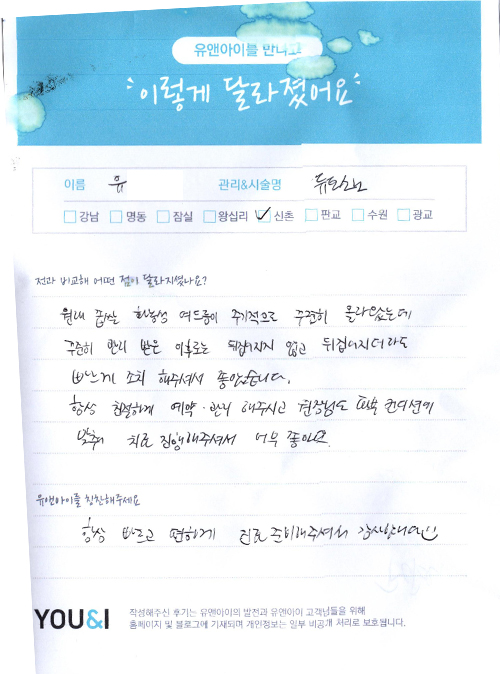 유앤아이를 만나고
이렇게 달라졌어요
이름 유 관리&시술명 듀얼소노
강남 명동 잠실 왕십리 신촌 판교 수원 광교
전과 비교해 어떤 점이 달라지셨나요?
원래 좁쌀 화농성 여드름이 주기적으로 꾸준히 올라왔는데
꾸준히 관리 받은 이후로는 뒤집어지지 않고 뒤집어지더라도
빠르게 조치 해주셔서 좋았습니다.
항상 친절하게 예약·관리 해주시고 원장님도 피부 컨디션에
맞춰 치료 진행해주셔서 너무 좋아요.
유앤아이를 칭찬해주세요
항상 빠르고 편하게 진료 준비해주셔서 감사합니다
YOU&I
작성해주신 후기는 유앤아이의 발전과 유앤아이 고객님들을 위해
홈페이지 및 블로그에 기재되며 개인정보는 일부 비공개 처리로 보호됩니다.